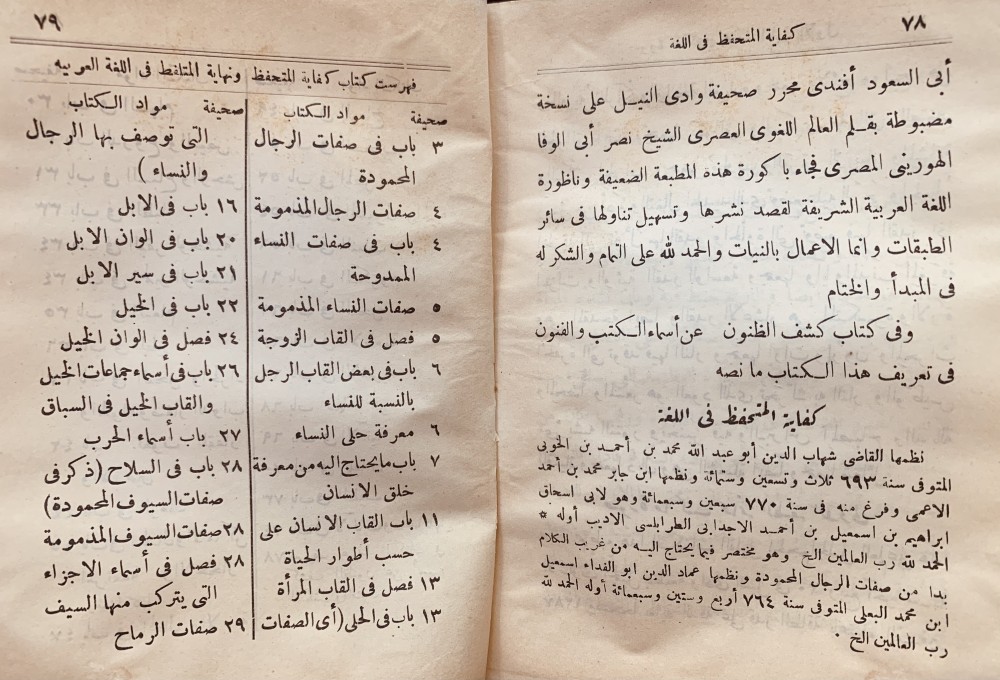 ٧٨
كفاية المتحفظ فى اللغة
أبى السعود أفندى محرر صحيفة وادى النيل على نسخة
مضبوطة بقلم العالم اللغوى العصرى الشيخ نصر أبى الوفا
الهورينى المصرى فجاء باكورة هذه المطبعة الضعيفة وناظورة
اللغة العربية الشريفة لقصد نشرها وتسهيل تناولها فى سائر
الطبقات وانما الاعمال بالنيات والحمد لله على التمام والشكر له
فى المبدأ والختام
وفى كتاب كشف الظنون عن أسماء الكتب والفنون
فى تعريف هذا الكتاب ما نصه
كفاية المتحفظ فى اللغة
نظمها القاضى شهاب الدين أبو عبد الله محمد بن أحمد بن الخوبى
المتوفى سنة ٦٩٣ ثلاث وتسعين وستمائة ونظمها ابن جابر محمد بن أحمد
الاعمى وفرغ منه فى سنة ٧٧٠ سبعين وسبعمائة وهو لابى اسحاق
ابراهيم بن اسمعيل بن أحمد الاجدابى الطرابلسى الاديب أوله *
الحمد لله رب العالمين الخ وهو مختصر فيما يحتاج اليه من غريب الكلام
بدا من صفات الرجال المحمودة ونظمها عماد الدين ابو الفداء اسمعيل
ابن محمد البعلى المتوفى سنة ٧٦٤ أربع وستين وسبعمائة أوله الحمد لله
رب العالمين الخ ٠
٧٩
فهرست كتاب كفاية المتحفظ
صحيفة مواد الكتاب
٣ باب فى صفات الرجال
المحمودة
٤ صفات الرجال المذمومة
٤ باب فى صفات النساء
الممدوحة
٥ صفات النساء المذمومة
٥ فصل فى القاب الزوجة
٦ باب فى بعض القاب الرجل
بالنسبة للنساء
٦ معرفة حلى النساء
٧ باب ما يحتاج اليه من معرفة
خلق الانسان
١١ باب القاب الانسان على
حسب أطوار الحياة
١٣ فصل فى القاب المرأة
١٣ باب فى الحلى (أى الصفات
ونهاية المتلفط فى اللغة العربيه
صحيفة مواد الكتاب
التى توصف بها الرجال
والنساء )
١٦ باب فى الابل
٢٠ باب فى الوان الابل
٢١ باب فى سير الابل
٢٢ باب فى الخيل
٢٤ فصل فى الوان الخيل
٢٦ باب فى أسماء جماعات الخيل
والقاب الخيل فى السباق
٢٧ باب أسماء الحرب
٢٨ باب فى السلاح (ذكر فى
صفات السيوف المحمودة)
٢٨ صفات السيوف المذمومة
٢٨ فصل فى أسماء الاجزاء
التى يتركب منها السيف
٢٩ صفات الرماح